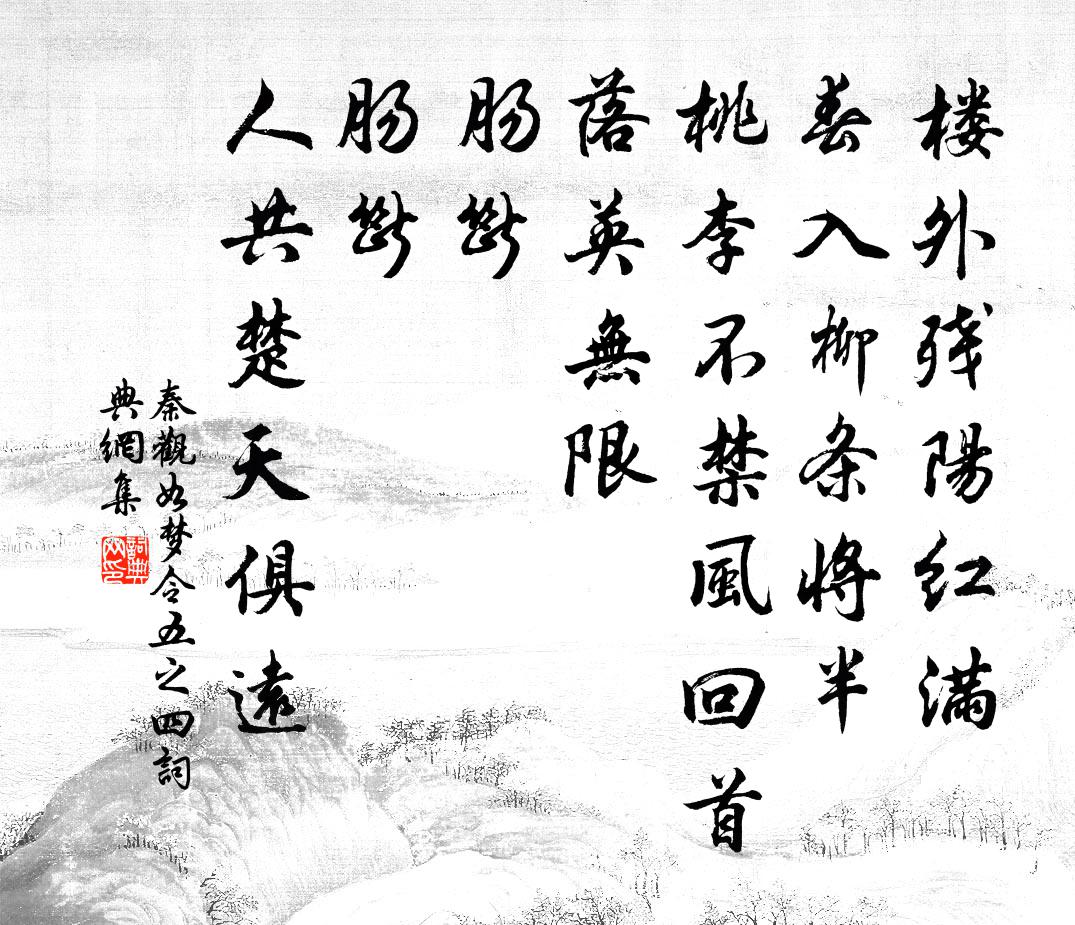 楼外残陽红滿
春入柳条將半
桃李不禁風回首
落英無限
肠斷
肠斷
人共楚天俱遠
秦觀如梦令五之四詞
典網集
詞典網印